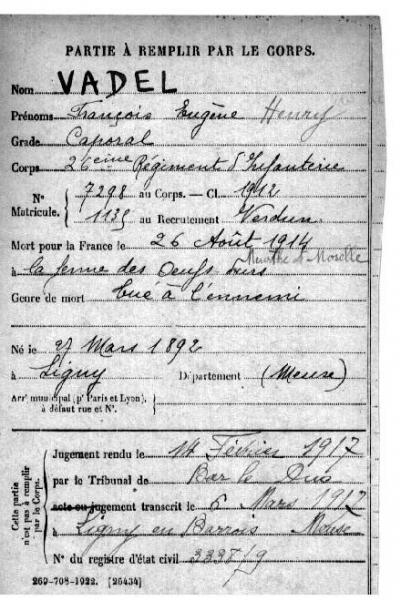 PARTIE À REMPLIR PAR LE CORPS.
Nom VADEL
Prénoms François Eugène Henry
Grade Caporal
Corps 26eme Régiment d'Infanterie
N° Matricule. { 7298 au Corps. — Cl. 1912
1135 au Recrutement Verdun
Mort pour la France le 26 Août 1914
à la ferme des Oeufs durs Meurthe et Moselle
Genre de mort tué à l'ennemi
Né le 27 Mars 1892
à Ligny Département (Meuse)
Arrt municipal (pr Paris et Lyon),
à défaut rue et N°.
Cette partie n'est pas à remplir par le Corps.
Jugement rendu le 14 Février 1917
par le Tribunal de Bar le Duc
acte ou jugement transcrit le 6 Mars 1917
à Ligny en Barrois Meuse
N° du registre d'état civil
269-708-1922. [26434]